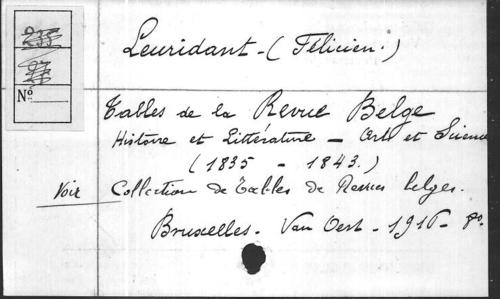 235
27
Nº
Leuridant - (Félicien.)
Tables de la Revue Belge
Histoire et Littérature - Arts et Science
(1835 - 1843.)
Voir Collection de Tables de Revues belges.
Bruxelles - Van Oest - 1916 - 8º.